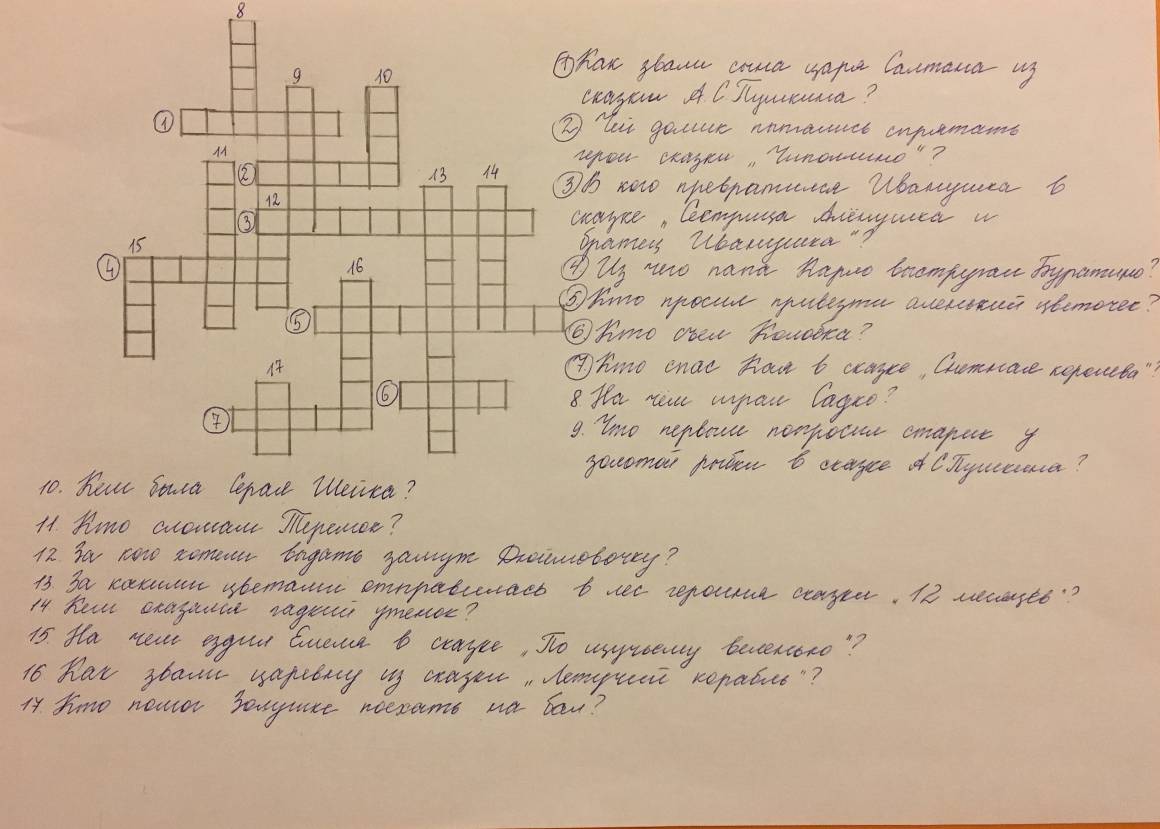 8
9
10
1
11
2
13
14
12
3
15
4
16
5
17
6
7
1 Как звали сына царя Салтана из
сказки А.С Пушкина?
2 Чей домик пытались спрятать
герои сказки „Чиполлино"?
3 В кого превратился Иванушка в
сказке „Сестрица Алёнушка и
братец Иванушка"?
4 Из чего папа Карло выстругал Буратино?
5 Кто просил привезти аленький цветочек?
6 Кто съел Колобка?
7. Кто спас Кая в сказке „Снежная королева"?
8. На чём играл Садко?
9. Что первым попросил старик у
золотой рыбки в сказке А С Пушкина?
10. Кем была Серая Шейка?
11. Кто сломал Теремок?
12. За кого хотели выдать замуж Дюймовочку?
13. За какими цветами отправилась в лес героиня сказки „12 месяцев"?
14 Кем оказался гадкий утенок?
15. На чем ездил Емеля в сказке „По щучьему веленью"?
16 Как звали царевну из сказки „Летучий корабль"?
17. Кто помог Золушке поехать на бал?